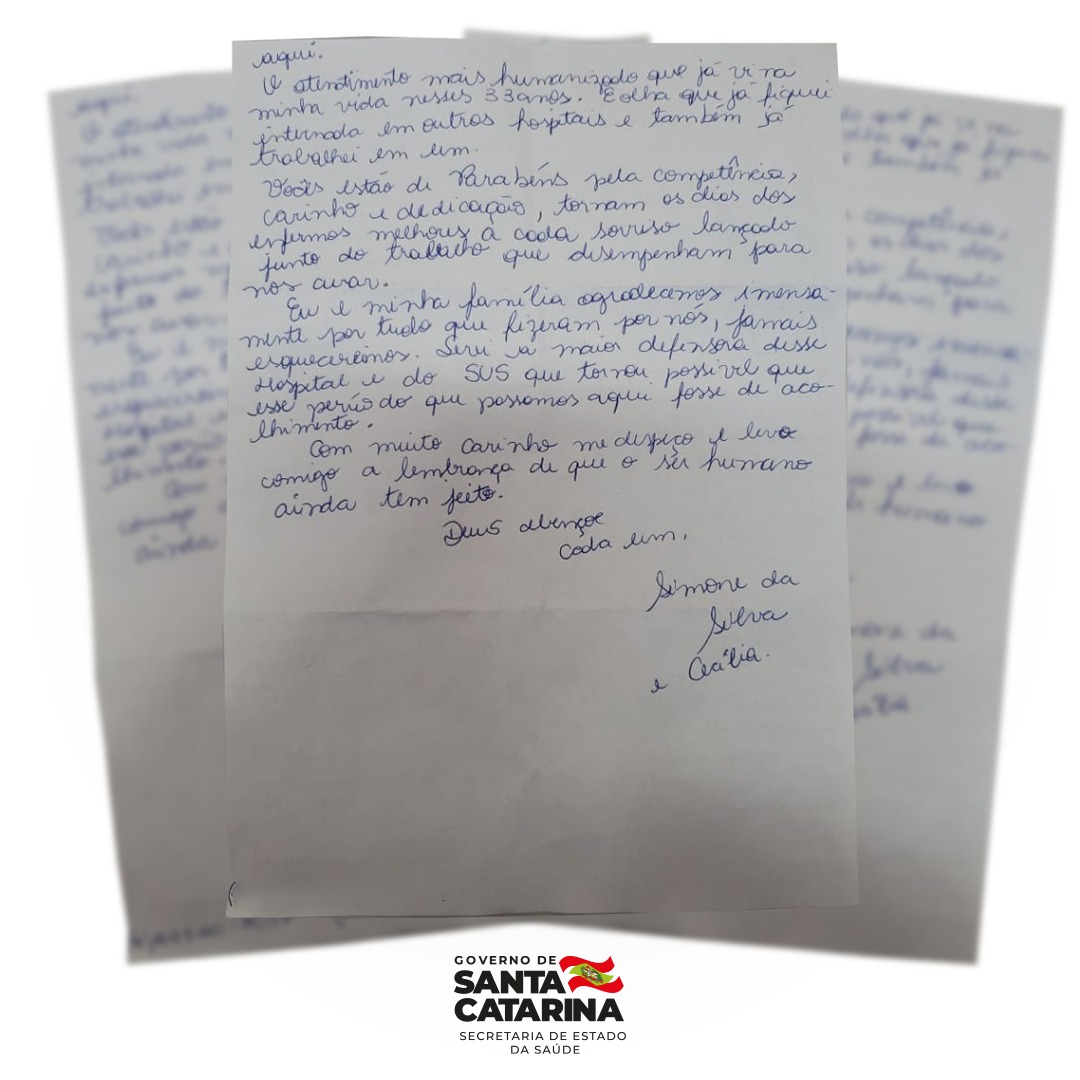 aqui.
O atendimento mais humanizado que já vi na
minha vida nesses 33 anos. E olha que já fiquei
internada em outros hospitais e também já
trabalhei em um.
Vocês estão de Parabéns pela competência,
carinho e dedicação, tornam os dias dos
enfermos melhores a cada sorriso lançado
junto do trabalho que desempenham para
nos curar.
Eu e minha família agradecemos imensa-
mente por tudo que fizeram por nós, jamais
esqueceremos. Serei a maior defensora desse
Hospital e do SUS que tornou possível que
esse período que passamos aqui fosse de aco-
lhimento.
Com muito carinho me despeço e levo
comigo a lembrança de que o ser humano
ainda tem jeito.
Deus abençoe
cada um,
Simone da
Silva
e Cecília.
GOVERNO DE
SANTA
CATARINA
SECRETARIA DE ESTADO
DA SAÚDE